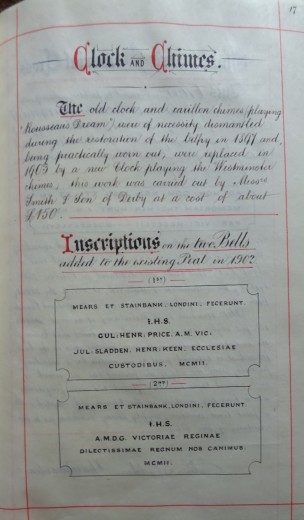 17
Clock AND Chimes.
The old clock and carillon chimes (playing
"Rousseau's Dream") were of necessity dismantled
during the restoration of the belfry in 1897 and,
being practically worn out, were replaced in
1903 by a new Clock playing the Westminster
chimes; this work was carried out by Messrs
Smith & Son of Derby at a cost of about
£150.
Inscriptions on the two Bells
added to the existing Peal in 1902
(1st)
MEARS ET STAINBANK, LONDINI, FECERUNT.
I.H.S.
GUL: HENR: PRICE. A.M. VIC.
JUL: SLADDEN. HENR: KEEN, ECCLESIAE
CUSTODIBUS. MCMII.
(2nd)
MEARS ET STAINBANK, LONDINI, FECERUNT.
I.H.S.
A.M.D.G. VICTORIAE REGINAE
DILECTISSIMAE REGNUM NOS CANIMUS.
MCMII.